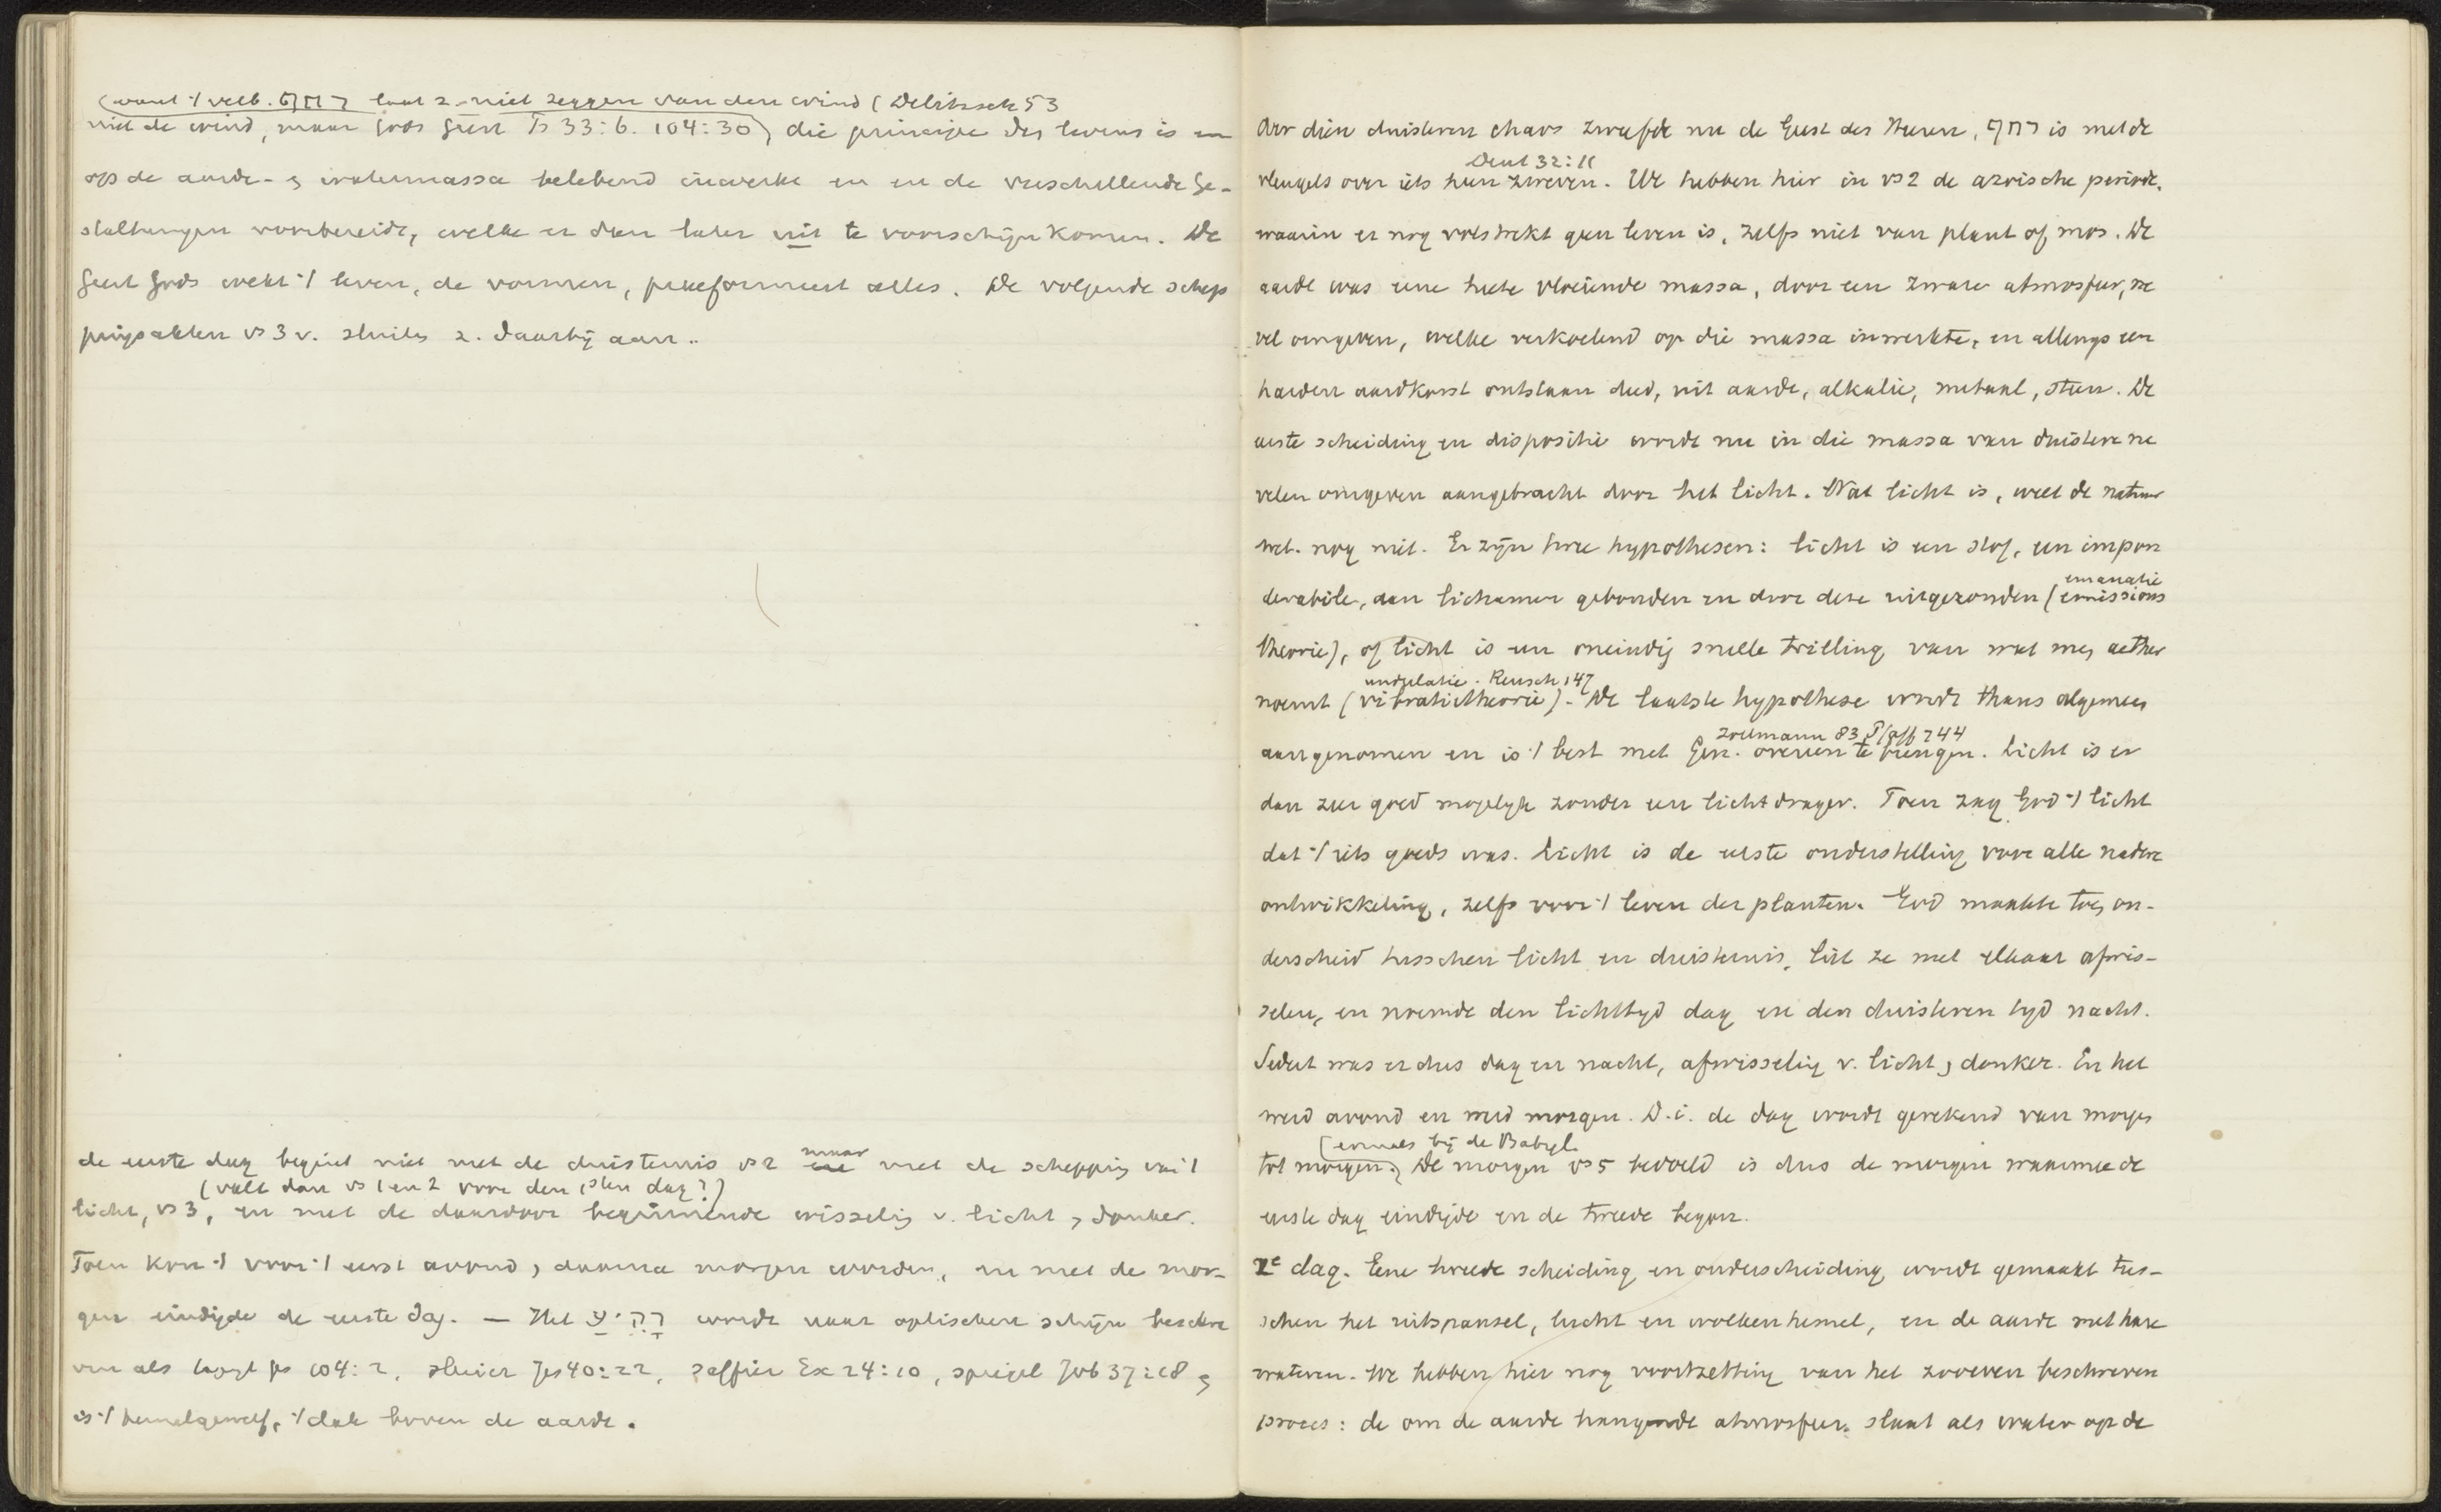 (want 't verb. רחף laat z. niet zeggen van den wind (Delitzsch 53
niet de wind, maar Gods Geest Ps 33:6. 104:30) die principe des levens is en
op de aarde- & watermassa belebend inwerke en en de verschillende ge-
staltungen voorbereidt, welke er dan later uit te voorschijn komen. De
Geest Gods wekt 't leven, de vormen, praeformeert alles. De volgende schep
pingsakten vs 3 v. sluiten z. daarbij aan..
de eerste dag begint niet met de duisternis vs 2 maar met de schepping van 't
(valt dan vs 1 en 2 voor den 1sten dag?)
licht, vs 3, en met de daardoor beginnende wisseling v. licht & donker.
Toen kon 't voor 't eerst avond & daarna morgen worden, en met de mor-
gen eindigde de eerste dag. — Het רקיע wordt naar optischen schijn beschre
ven als tapijt ps 104:2, sluier Jes 40:22, saffier Ex 24:10, spiegel Job 37:18 &
is 't hemelgewelf, 't dak boven de aarde.
Over dien duisteren chaos zweefde nu de Geest des Heeren, רחף is met de
Deut 32:11
vleugels over iets heen zweven. We hebben hier in vs 2 de azoische periode,
waarin er nog volstrekt geen leven is, zelfs niet van plant of mos. De
aarde was eene heete vloeiende massa, door een zware atmosfeer, ne
vel omgeven, welke verkoelend op die massa inwerkte, en allengs een
harden aardkorst ontstaan deed, uit aarde, alkalie, metaal, steen. De
eerste scheiding en dispositie wordt nu in die massa van duistere ne
velen omgeven aangebracht door het licht. Wat licht is, weet de natuur
wet. nog niet. Er zijn twee hypothesen: licht is een stof, een impon
emanatie
derabile, aan lichamen gebonden en door deze uitgezonden (emissions
theorie), of licht is een oneindig snelle trilling van wat men aether
undulatie. Reusch 147
noemt (vibratietheorie). De laatste hypothese wordt thans algemeen
Zollmann 83 Pfaff 744
aangenomen en is 't best met Gen. overeen te brengen. Licht is er
dan zeer goed mogelijk zonder een lichtdrager. Toen zag God 't licht
dat 't iets goeds was. Licht is de eerste onderstelling voor alle nadere
ontwikkeling, zelfs voor 't leven der planten. God maakte toen on-
derscheid tusschen licht en duisternis, liet ze met elkaar afwis-
selen, en noemde den lichttijd dag en den duisteren tijd nacht.
Sedert was er dus dag en nacht, afwisseling v. licht & donker. En het
werd avond en werd morgen. D.i. de dag wordt gerekend van morgen
(evenals bij de Babyl.
tot morgen. De morgen vs 5 bedoeld is dus de morgen waarmee de
eerste dag eindigde en de tweede begon.
2e dag. Eene tweede scheiding en onderscheiding wordt gemaakt tus-
schen het uitspansel, lucht en wolkenhemel, en de aarde met hare
wateren. We hebben hier nog voortzetting van het zooeven beschreven
proces: de om de aarde hangende atmosfeer, slaat als water op de